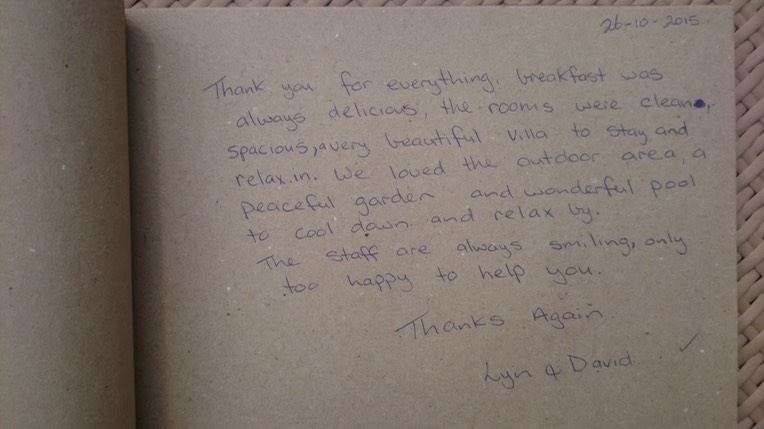 26-10-2015
Thank you for everything. breakfast was
always delicious, the rooms were clean,
spacious, a very beautiful villa to stay and
relax in. We loved the outdoor area, a
peaceful garden and wonderful pool
to cool down and relax by.
The staff are always smiling, only
too happy to help you.
Thanks Again
Lyn & David